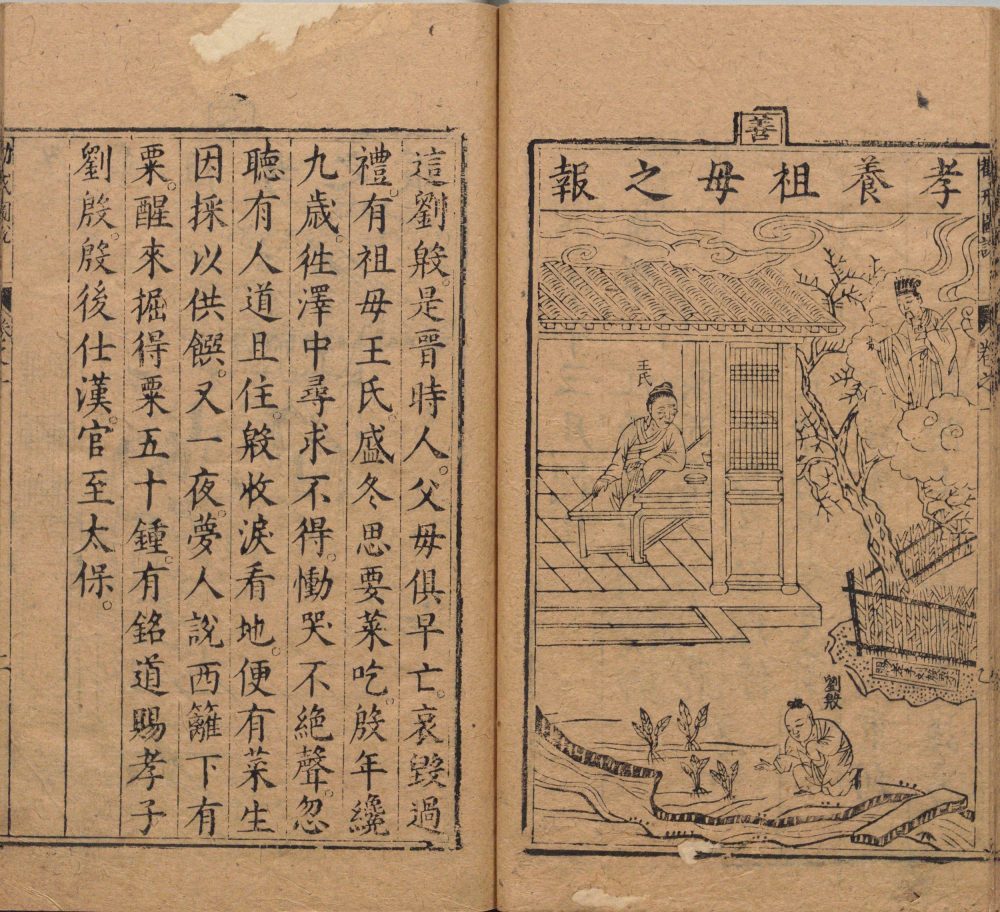 善
孝養祖母之報
王氏
劉殷
這劉殷。是晉時人。父母俱早亡。哀毀過
禮。有祖母王氏。盛冬思要菜吃。殷年纔
九歲。徃澤中尋求不得。慟哭不絶聲。忽
聽有人道且住。殷收淚看地。便有菜生
因採以供饌。又一夜。夢人說西籬下有
粟。醒來掘得粟五十鍾。有銘道賜孝子
劉殷。殷後仕漢。官至太保。